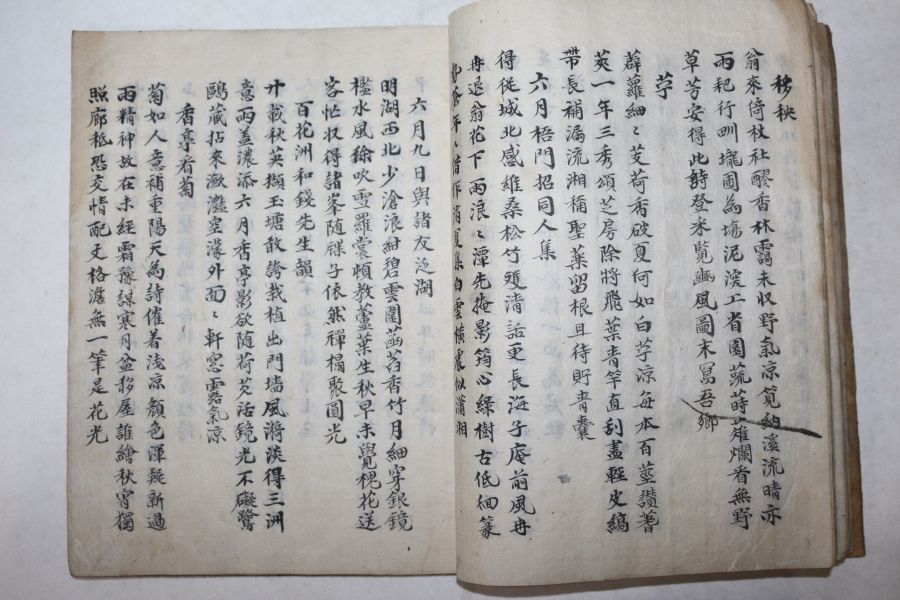 移秧
翁來倚杖社醪香林靄未収野氣凉筧納溪流晴亦
雨耙行甽壠圃為場泥深工省園蔬蒔薙爛看無野
草芳安得此詩登禾覧豳風圖末寫吾鄉
苧
薜蘿細〻芰荷香破夏何如白苧凉每本百莖讚蓍
莢一年三秀頌芝房除將飛葉青竿直刮盡輕皮縞
帶長補漏流湘稱聖薬留根且待貯青囊
六月梧門招同人集
得從城北感維桑松竹獲清話更長海子庵前風冉
冉退翁花下雨浪〻潭先掩影筠心綠樹古低細篆
集白雲橫
湘
六月九日與諸友泛湖
明湖西北少滄浪紺碧雲園菡萏香竹月細穿銀鏡
檻水風徐吹雪羅裳頓教蘆葉生秋早未覺槐花送
客忙収得諸峯随楪子依然禪榻聚圓光
百花洲和錢先生韻
廿載秋英擷玉塘敢誇栽植出門墻風漪淡得三洲
意雨盖濃添六月香亭影欲随荷芡活鏡光不礙鷺
鷗藏拈來瀲灩空濛外面〻軒窓露氣凉
香亭看菊
菊如人意補重陽天為詩催着淺凉顏色渾疑新過
雨精神故在未經霜豫謀寒月盆移屋誰繪秋宵獨
照廊秪恐交情配文格澹無一筆是花光